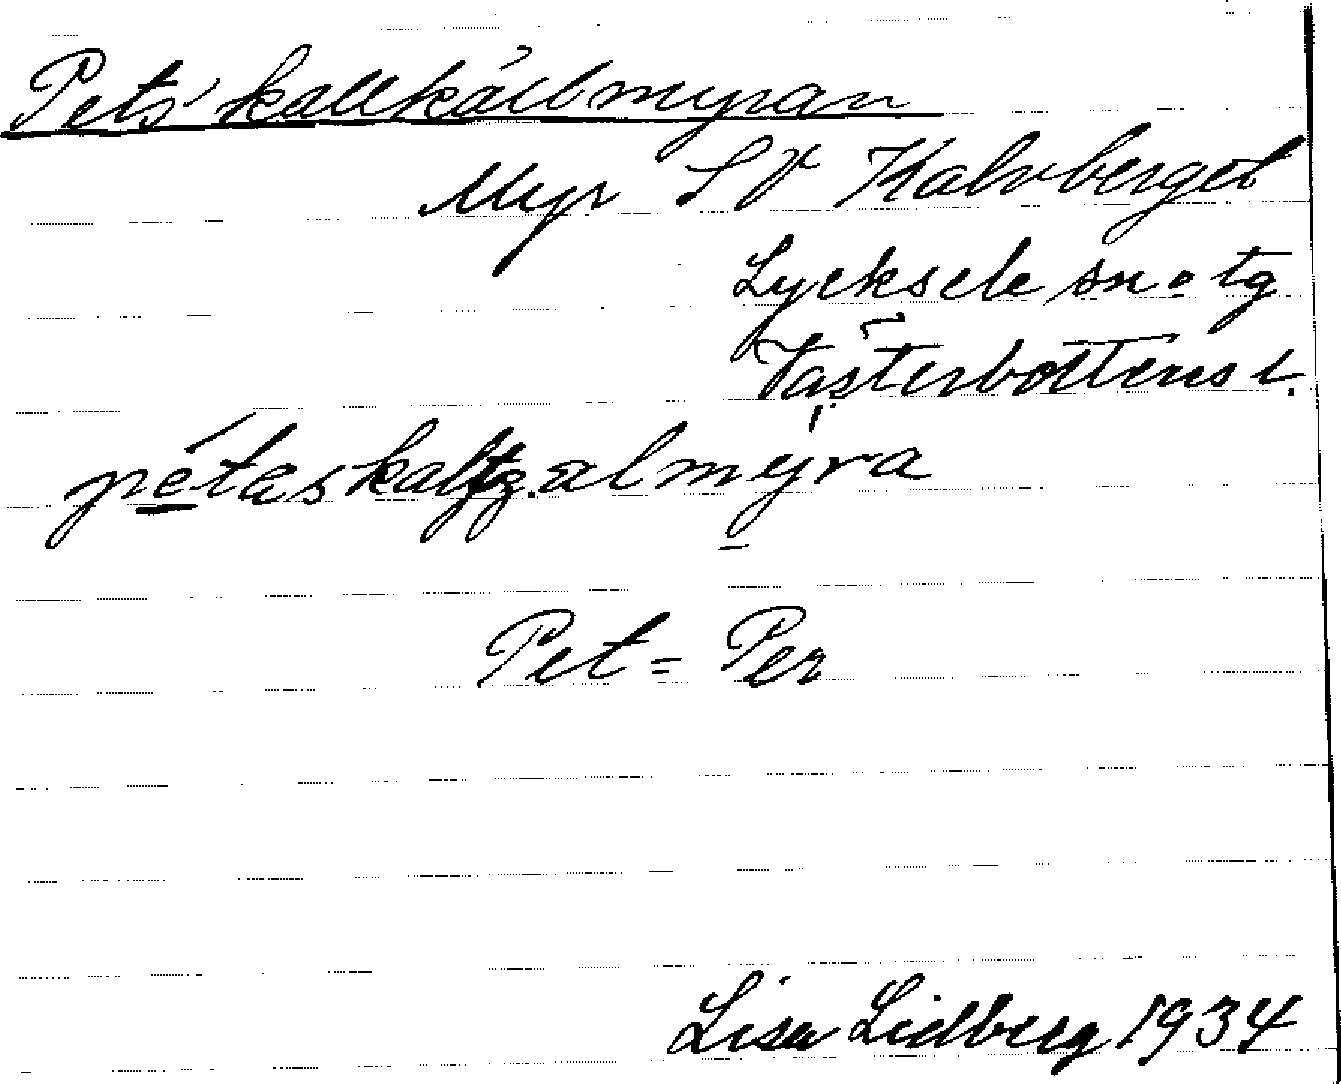 Pets'kallkälbmyran
Myr SV Kalvberget
Lycksele sn o tg
Västerbottens l.
Pet = Per
Lisa Lidberg 1934